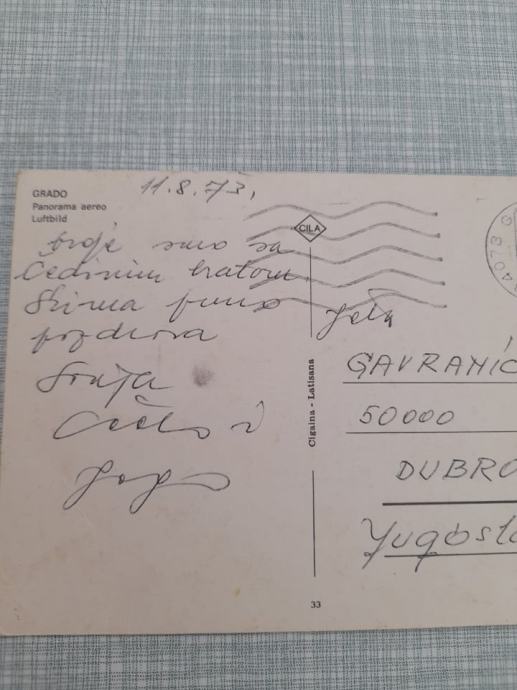 GRADO
Panorama aereo
Luftbild
11.8.73,
CILA
troje smo sa
Čedinim bratom
Svima puno
pozdrava
i
Jela
GAVRANIĆ
50000
DUBRO
Yugosla
Cigaina - Latisana
33
34073 G